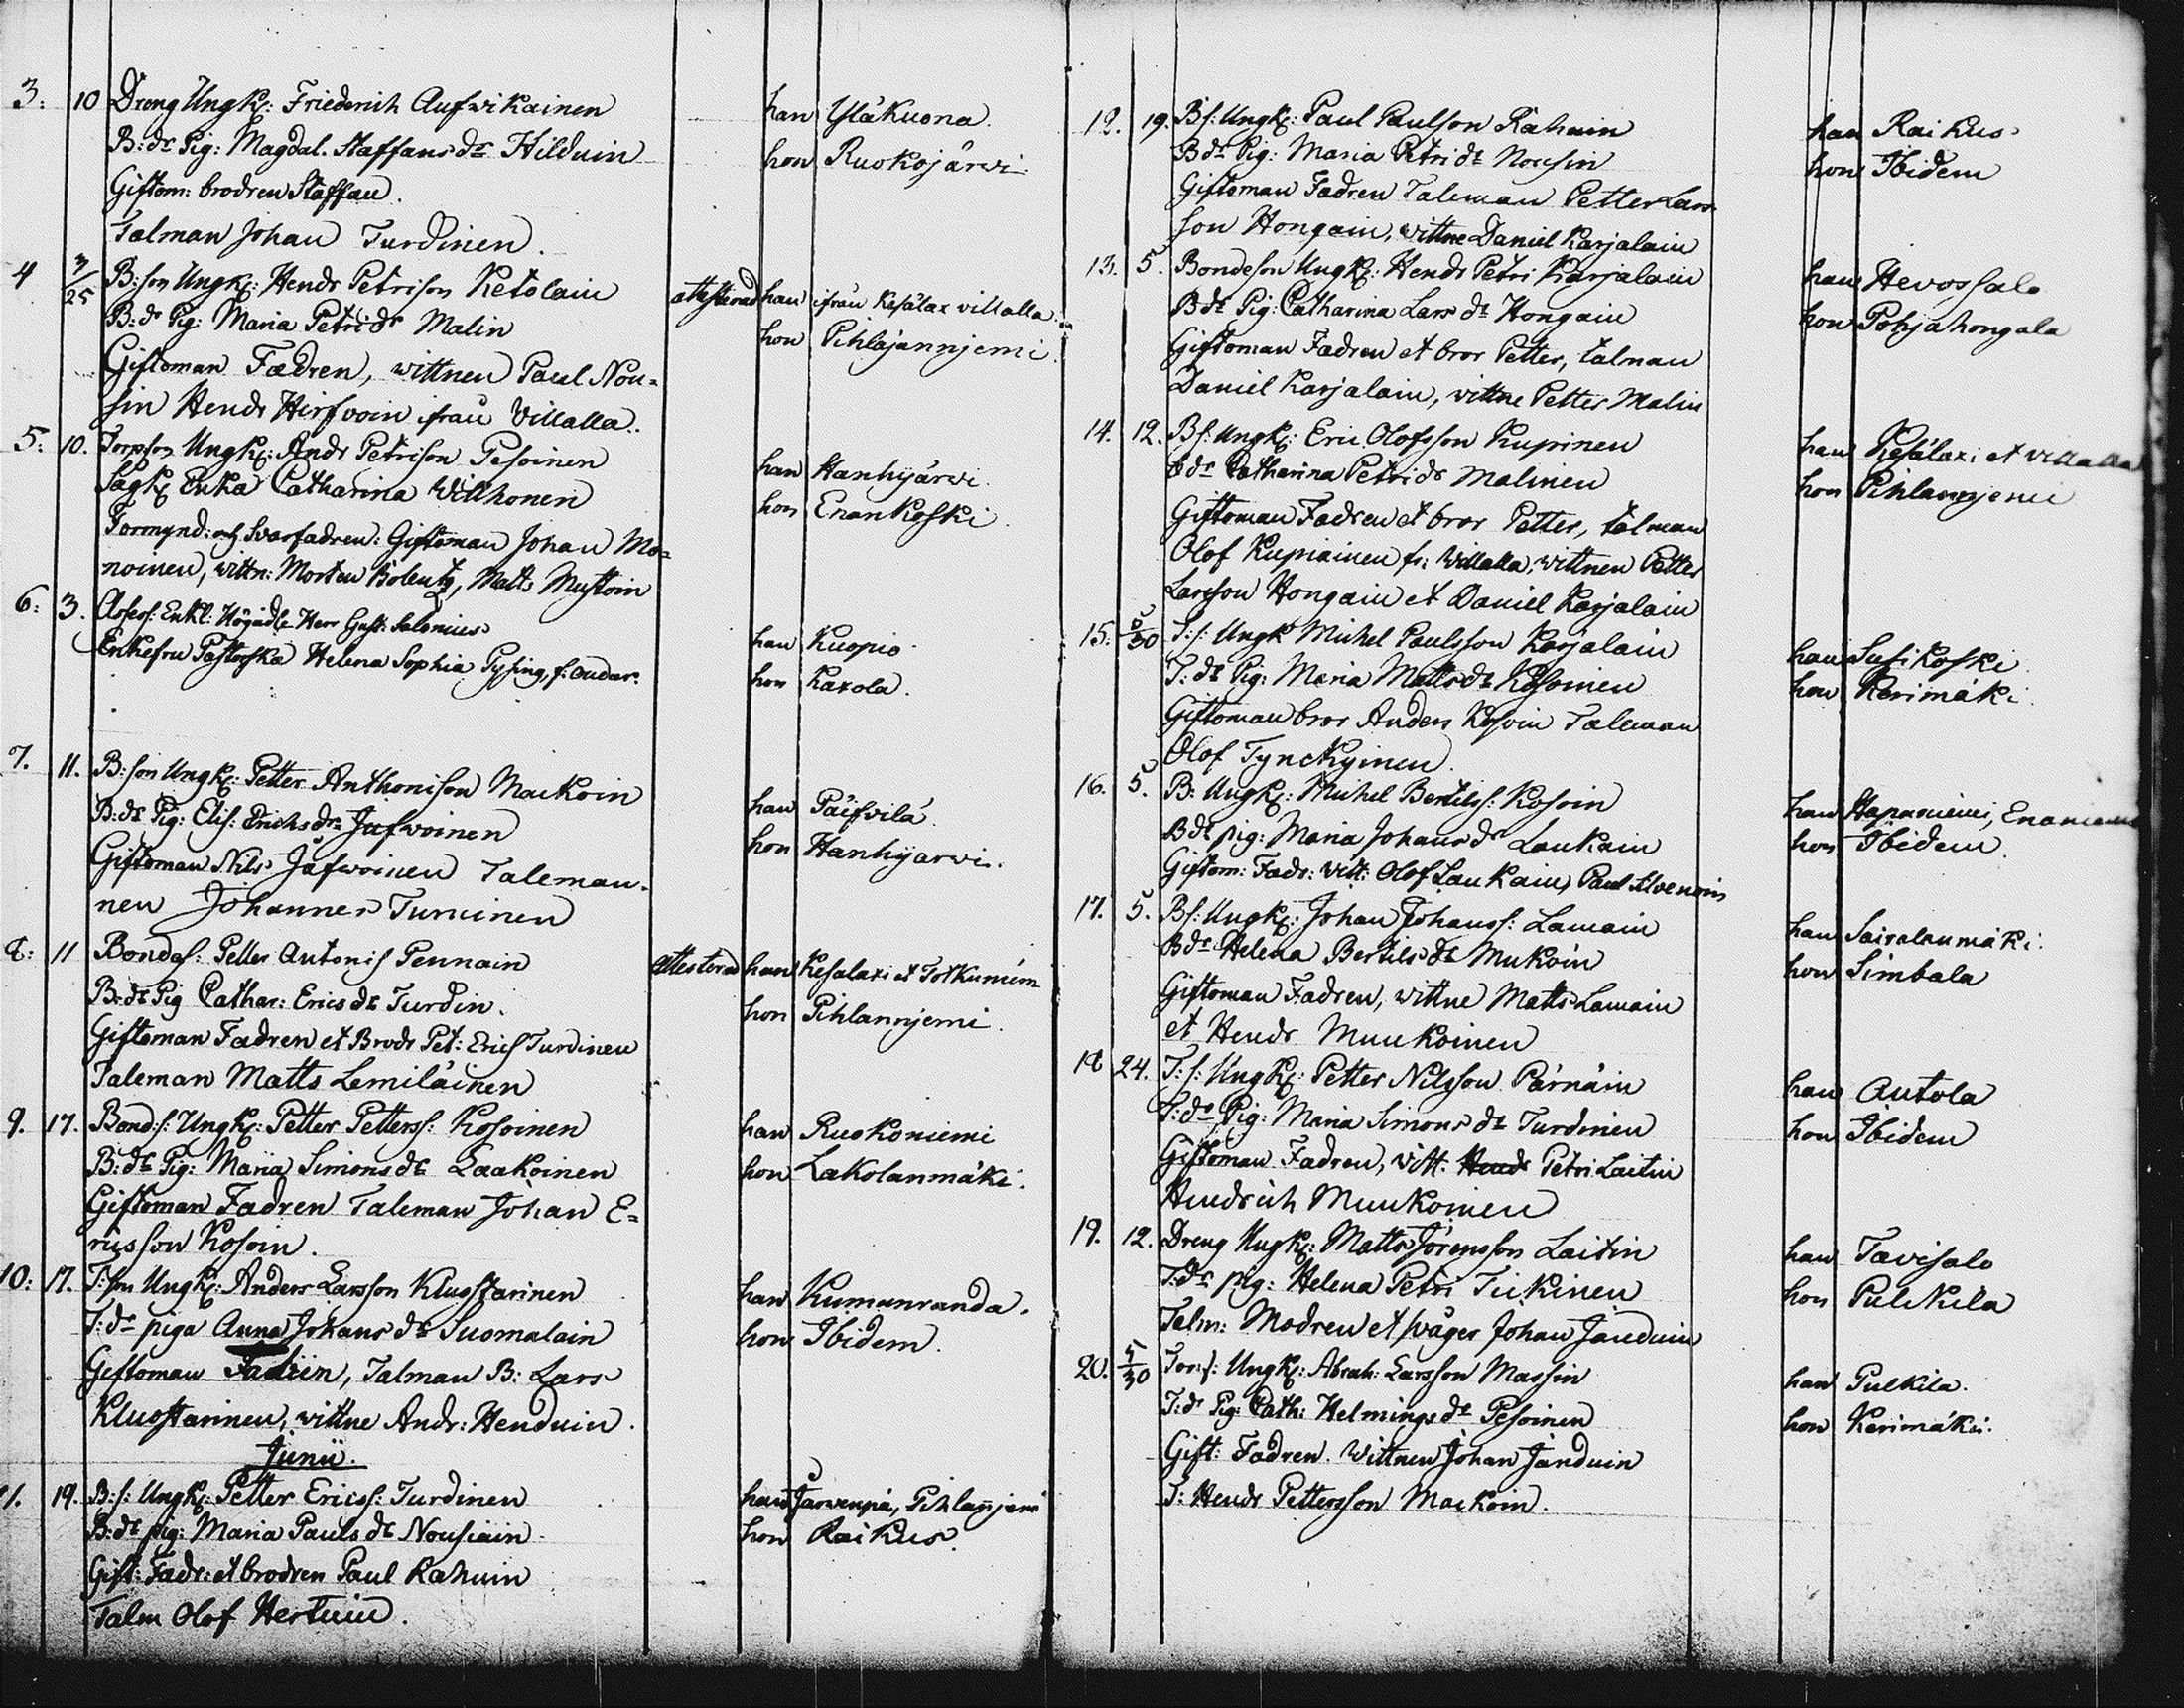 3: 10 Dreng Ungk: Friederich Aufwikainen han Yläkuona.
B: dr Pig: Magdal. Staffans dr Hilduin hon Ruokojärwi.
Giftom: brodren Staffan.
Talman Johan Turdinen.
4 3/25 B: son Ungk: Hendr Petrison Ketolain attesterad han ifrån Kesälax villalla.
B: dr Pig: Maria Petri dr Malin hon Pihlajannjemi.
Giftoman Fædren, wittnen Paul Nou=
sin Hendr Hirfvoin ifrån Villalla.
5: 10. Torpson Ungk: Andr Petrison Pesoinen han Hanhijärwi.
Enka Catharina Willhonen hon Enonkoski.
Formynd: och Svarfadren: Giftoman Johan Mo=
noinen, wittn: Morten Matts Mustoin
6: 3. Enkl: Högädle Herr Gust: Salonius han Kuopio.
Enkefru Pastorska Helena Sophia han hon Karola.
7. 11. B: son Ungk: Petter Anthonison Maikoin han Päifvilä.
B: dr Pig: Elis: Erichs dr Jäfwoinen hon Hanhijarwi.
Giftoman Nils Jäfwoinen Taleman=
nen Johannes Turuinen
8: 11 Bondes: Petter Antonis Pennain attesterad han Kesalaxi et Totkuniem
B: dr Pig Cathar: Erics dr Turdin. hon Pihlannjemi.
Giftoman Fadren et Brodr Pet: Erics Turdinen
Taleman Matts Lemiläinen
9. 17. Bond: s: Ungk: Petter Petterss: Kosoinen han Ruokoniemi
B: dr Pig: Maria Simons dr Laakoinen hon Lakolanmäki.
Giftoman Fadren Taleman Johan E=
ricsson Kosoin.
10: 17. T: son Ungk: Anders Larsson Kluostarinen han Kumunranda.
T: dr piga Anna Johans dr Suomalain hon Ibidem.
Giftoman Fadren, Talman B: Lars
Kluostarinen, wittne Andr: Henduin.
Junii.
11. 19. B: s: Ungk: Petter Ericss: Turdinen han Jarwenpä, Pihlanjemi
B: dr pig: Maria Pauls dr Nousiain hon Raikus.
Gift: Fadr: et brodren Paul Rahuin
Talm Olof Hertuin.
12. 19. Bs: Ungk: Paul Paulson Rahuin han Raikus
B dr Pig: Maria Petri dr Nousin hon Ibidem
Giftoman Fadren Taleman Petter Lars
son Hongain, wittne Daniel Karjalain
13. 5. Bondeson Ungk: Hendr Petri Karjalain han Hevossalo
B dr Pig: Catharina Lars dr Hongain hon Pohjahongala
Giftoman Fadren et bror Petter, talman
Daniel Karjalain, vittne Petter Malin
14. 12. Bs: Ungk: Eric Olofsson Kupinen han Kesälaxi et villalla
b dr Catharina Petri dr Malinen hon Pihlannjemi
Giftoman Fadren et bror Petter, talman
Olof Kupiainen fr: Willalla, wittnen Petter
Larsson Hongain et Daniel Karjalain
15. 5/30 T: s: Ungk Michel Paulsson Karjalain han Susikoski
T: dr Pig: Maria Matts dr Kosoinen hon Kerimäki.
Giftoman bror Anders Kosoin Taleman
Olof Tynckyinen.
16. 5. B: Ungk: Michel Bertelss: Kosoin han Haparniemi,
B dr pig: Maria Johans dr Laukain hon Ibidem
Giftom: Fadr: vitt: Olof Laukain, Paul Silvenoin
17. 5. Bs: Ungk: Johan Johanss: Lamain han Sairalanmäki.
B dr Helena Bertils dr Mukoin hon Simbala
Giftoman Fadren, wittne Matts Lamain
et Hendr Muukoinen
18 24. T: s: Ungk: Petter Nilsson Pärnäin han Autola
T: dr Pig: Maria Simons dr Turdinen hon Ibidem
Giftoman Fadren, vitt. Hendr Petri Laitin
Hindrich Muukoinen
19. 12. Dreng Ungk: Matts Jörensson Laitin han Tavisalo
T: dr pig: Helena Petri Tickinen hon Pulkila
Talm: Modren et svåger Johan Janduin
20. 5/30 Tor: s: Ungk: Abrah: Larsson Massin han Pulkila.
T: dr Pig: Cath: Helmings dr Pesoinen hon Kerimäki.
Gift: Fadren. Wittnen Johan Janduin
T: Hendr Pettersson Maikoin.